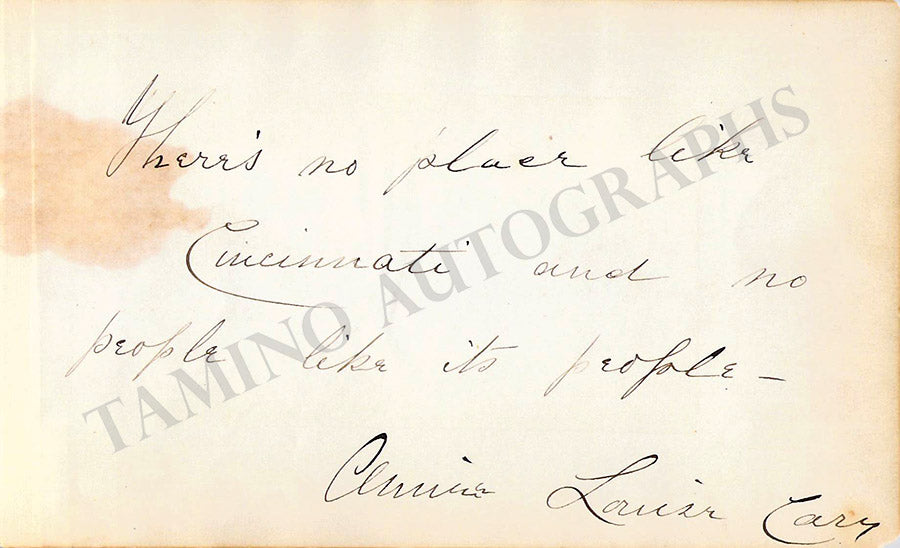 There's no place like
Cincinnati and no
people like its people –
Annie Louise Cary
TAMINO AUTOGRAPHS